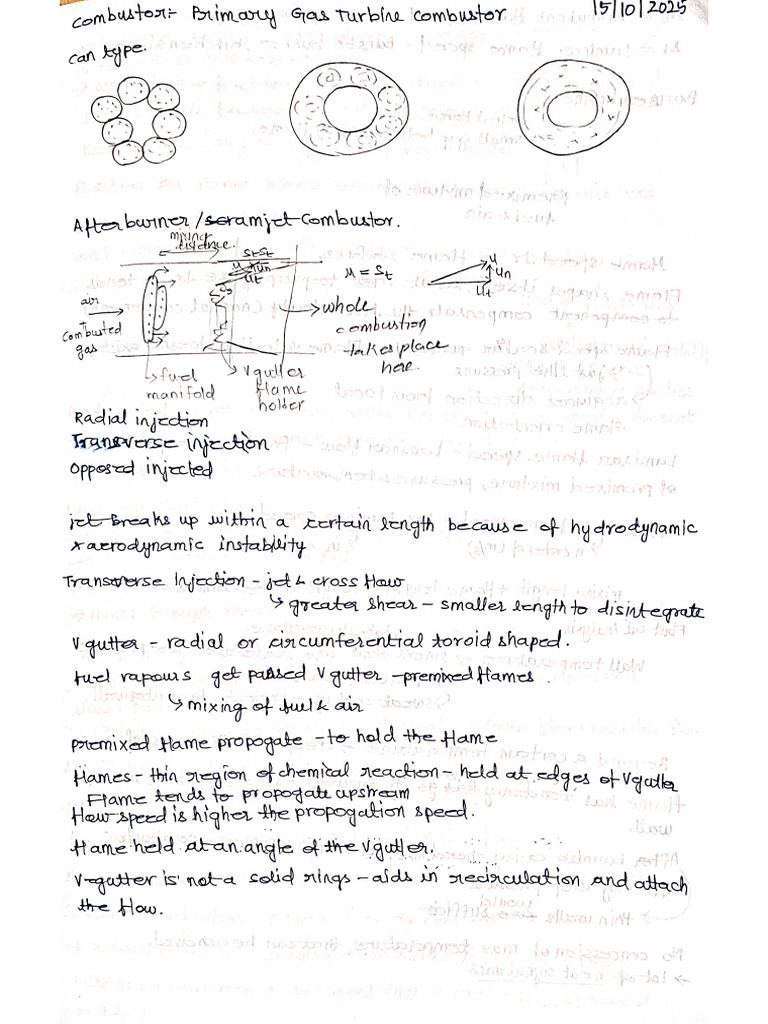 Combustor:- Primary Gas Turbine Combustor
15/10/2025
can type.
Afterburner/scramjet Combustor.
mixing
distance.
St St
u un
ut
u = St
u
un
ut
air
+
combusted
gas
whole
combustion
takes place
here.
fuel
manifold
V gutter
flame
holder
Radial injection
Transverse injection
Opposed injected
jet Breaks up within a certain length because of hydrodynamic
& aerodynamic instability
Transverse Injection - jet & cross flow
greater shear - smaller length to disintegrate
V gutter - radial or circumferential toroid shaped.
fuel vapours get passed V gutter - premixed flames.
mixing of fuel & air
premixed flame propogate - to hold the flame
flames - thin region of chemical reaction - held at edges of V gutter
Flame tends to propogate upstream
flow speed is higher the propogation speed.
flame held at an angle of the V gutter.
V-gutter is not a solid rings - aids in recirculation and attach
the flow.